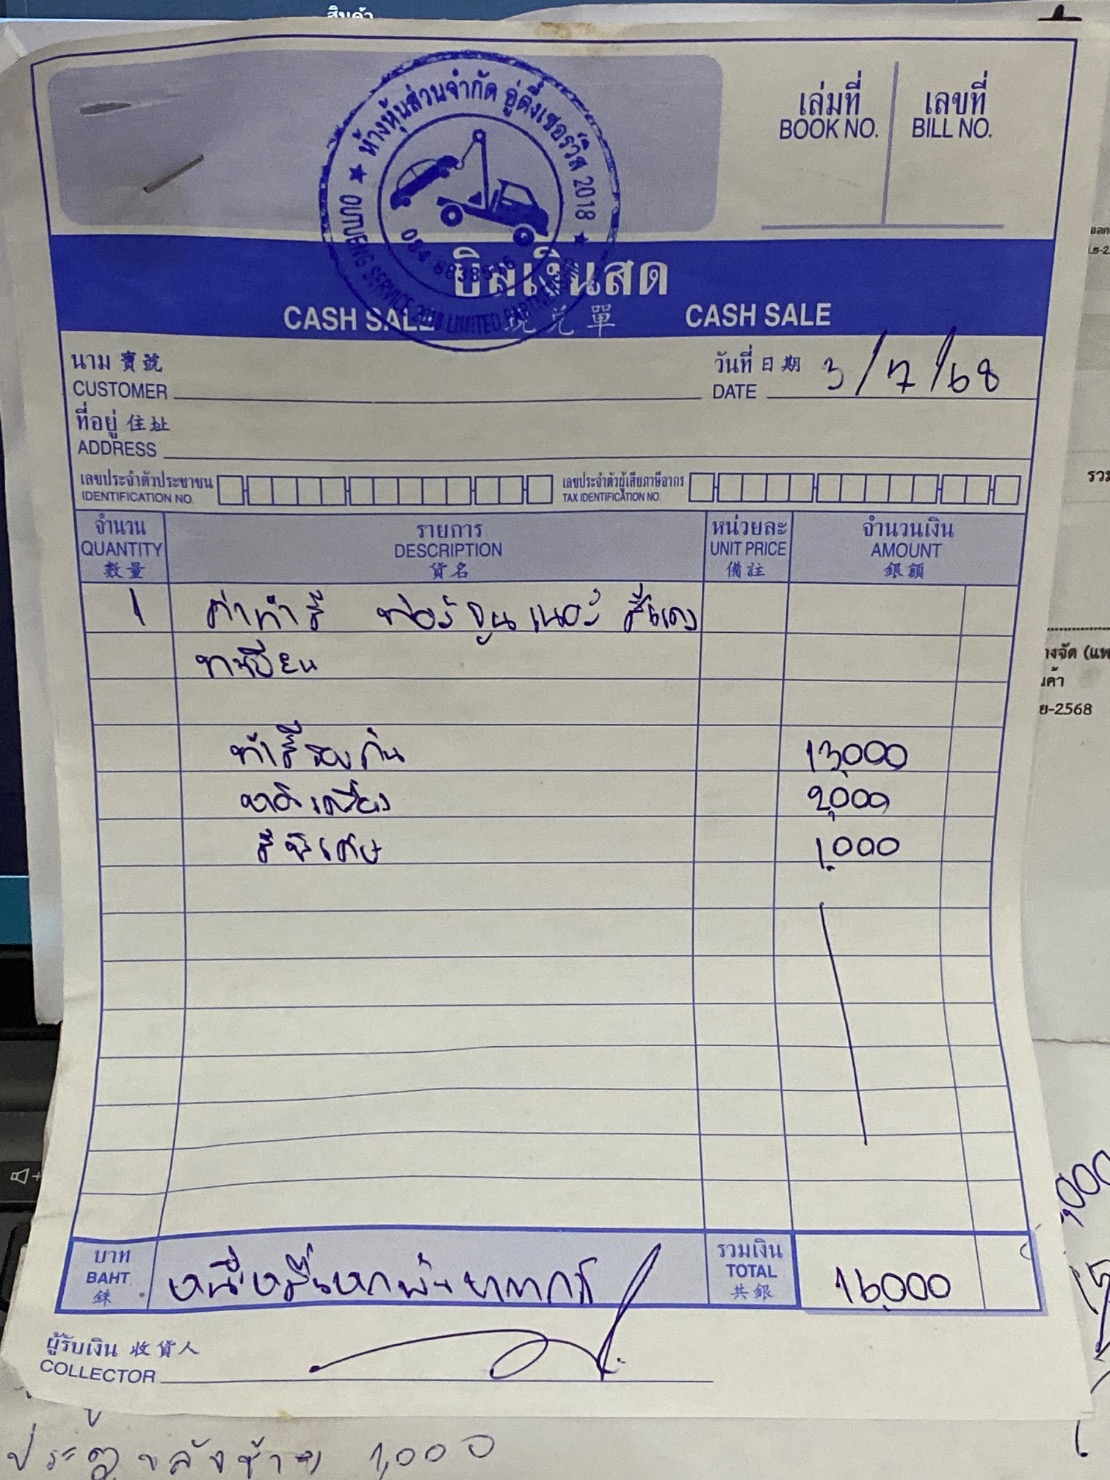 สินค้า
ห้างหุ้นส่วนจำกัด อู่ดึ๋งเซอร์วิส 2018
SERVICE 2018 LIMITED PARTNERSHIP
เล่มที่ เลขที่
BOOK NO. BILL NO.
บิลเงินสด
CASH SALE 現兌單 CASH SALE
นาม 寶號 วันที่ 日期 3/7/68
CUSTOMER DATE
ที่อยู่ 住址
ADDRESS
เลขประจำตัวประชาชน เลขประจำตัวผู้เสียภาษีอากร
IDENTIFICATION NO. TAX IDENTIFICATION NO.
จำนวน รายการ หน่วยละ จำนวนเงิน
QUANTITY DESCRIPTION UNIT PRICE AMOUNT
數量 貨名 備註 銀額
1 ค่าทำสี ฟอร์จูนเนอร์ สีแดง
ทะเบียน
ทำสีรอบคัน 13,000
2,000
สีพิเศษ 1,000
บาท หนึ่งหมื่นหกพันบาท รวมเงิน
BAHT TOTAL 16,000
銖 共銀
ผู้รับเงิน 收貨人
COLLECTOR
ประตูหลังซ้าย 1,000
รวม
างจัด (แพ
นค้า
ย-2568
,000